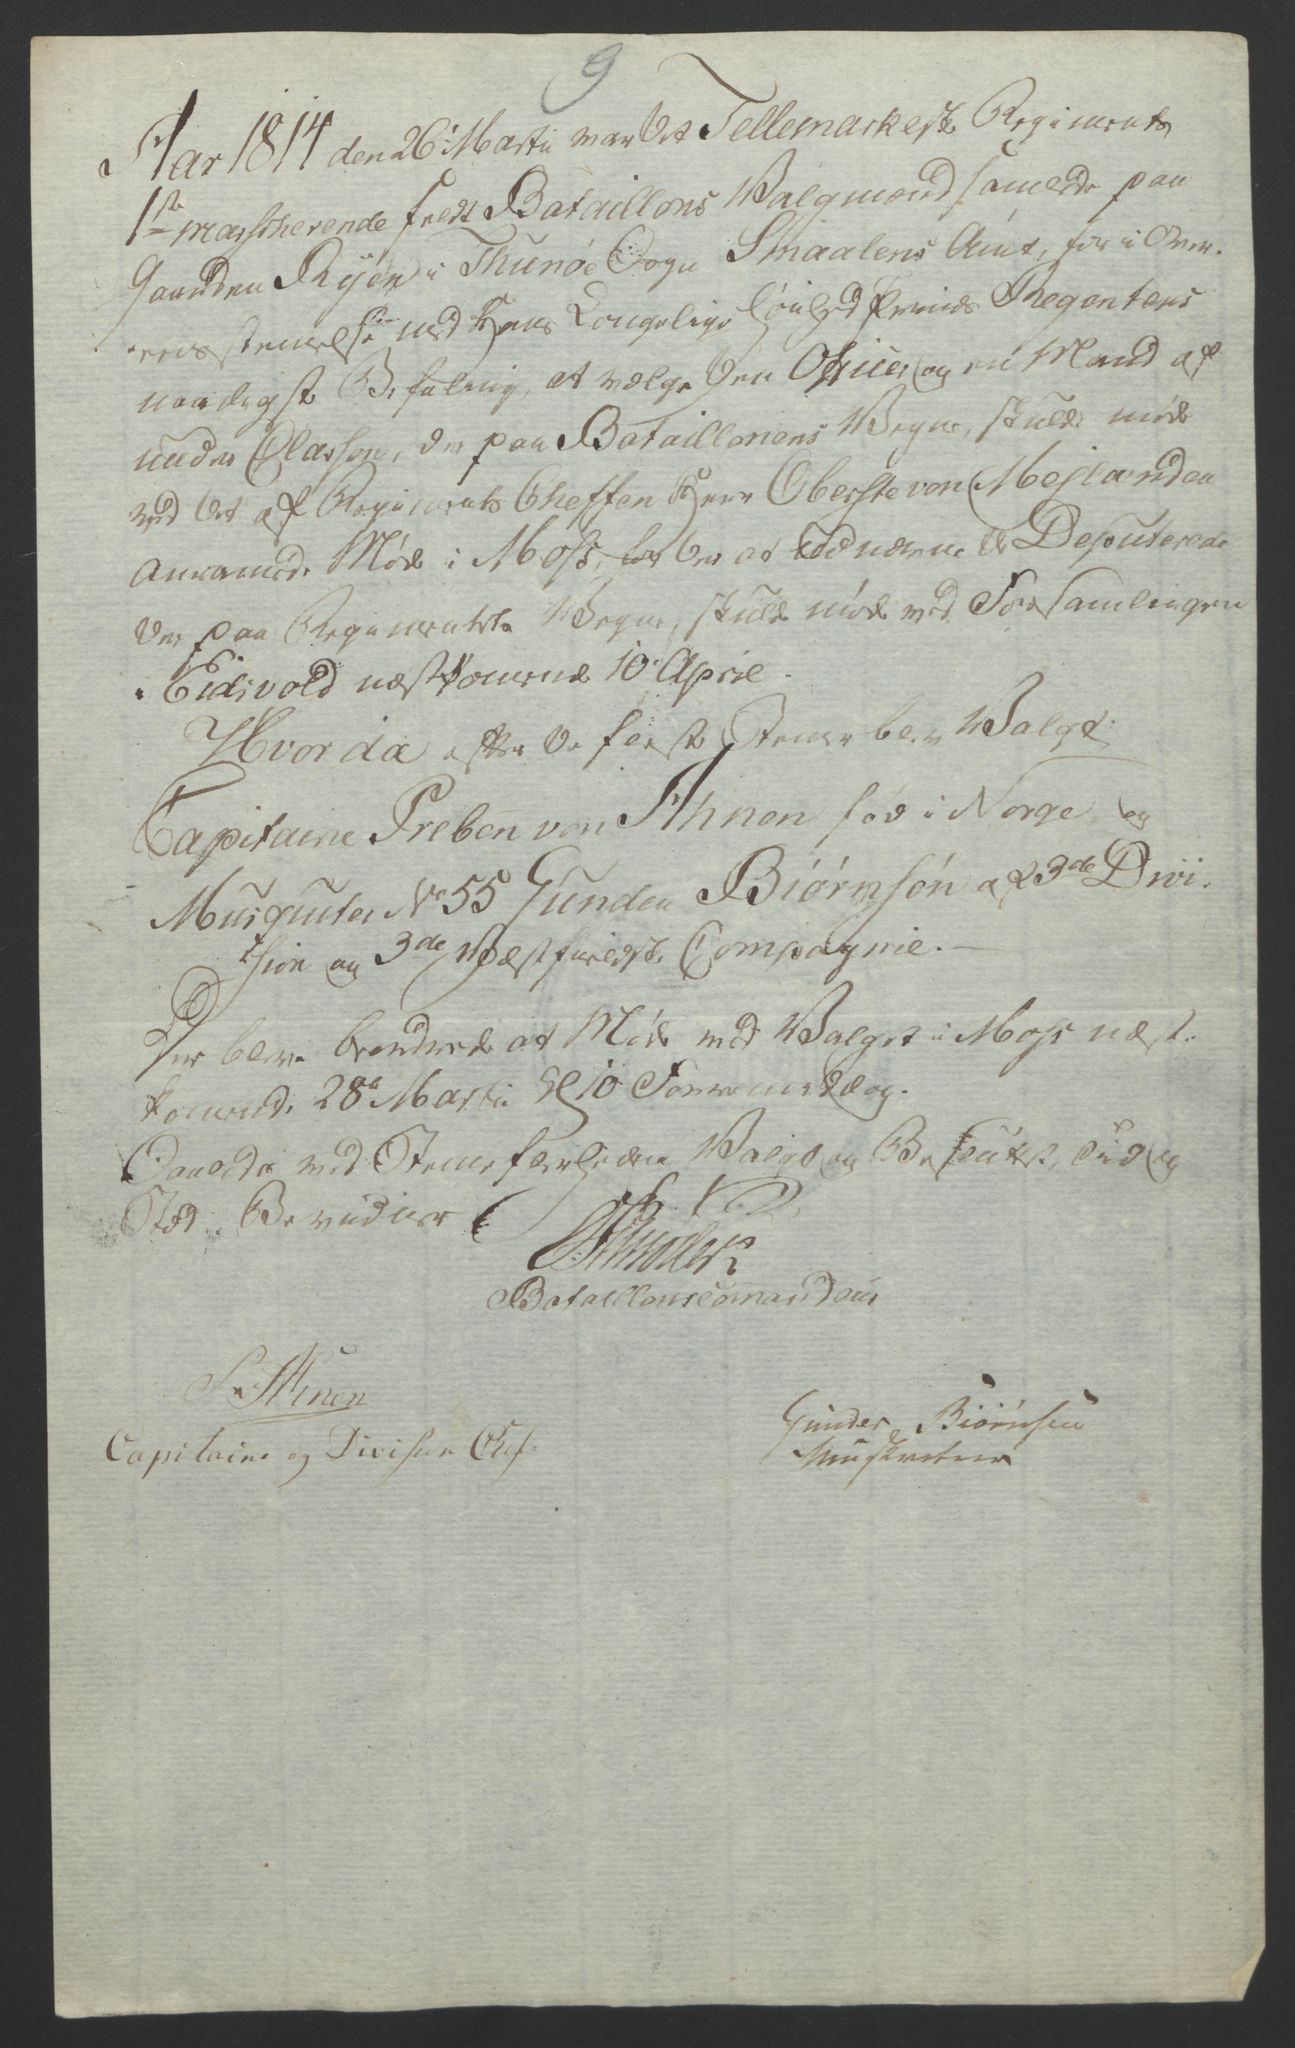 9
Aar 1814 den 26 Martii var det Tellemarkesk Regiments
1ste marscherende feldt Bataillons Valgmænd samlede paa
Gaarden Ryen i Thunøe Sogn Smaalens Amt, for i Over-
eensstemelse med Hans Kongelige Høihed Prinds Regentens
naadigste Befaling, at vælge Een Officer og en Mand af
under Classen, der paa Bataillonens Vegne, skulde møde
ved det af Regiments Cheffen Herr Oberste von Mejlænder
anramede Møde i Moss, for der at udnævne de Deputerede
der paa Regimentets Vegne, skulde møde ved Forsamlingen
i Eidsvold næstkomende 10 April.
Hvor da efter de fleste Stemer blev Valgt
Capitaine Preben von Ahnen fød i Norge, og
Musqueter No 55 Gunder Biørnsøn af 3de Divi-
sion og 3de Vestfieldske Compagnie. —
Der blev beordrede at Møde ved Valget i Moss næst-
komende 28de Martii Kl 10 Formiddag.
Saaledes ved Stemeflerhed Valgt og Besluttet, Tid og
Sted Bevidner
Bataillonscommandeur
P v Ahnen
Capitaine og Divisions Chef.
Gunder Biørnsen
Musketeer